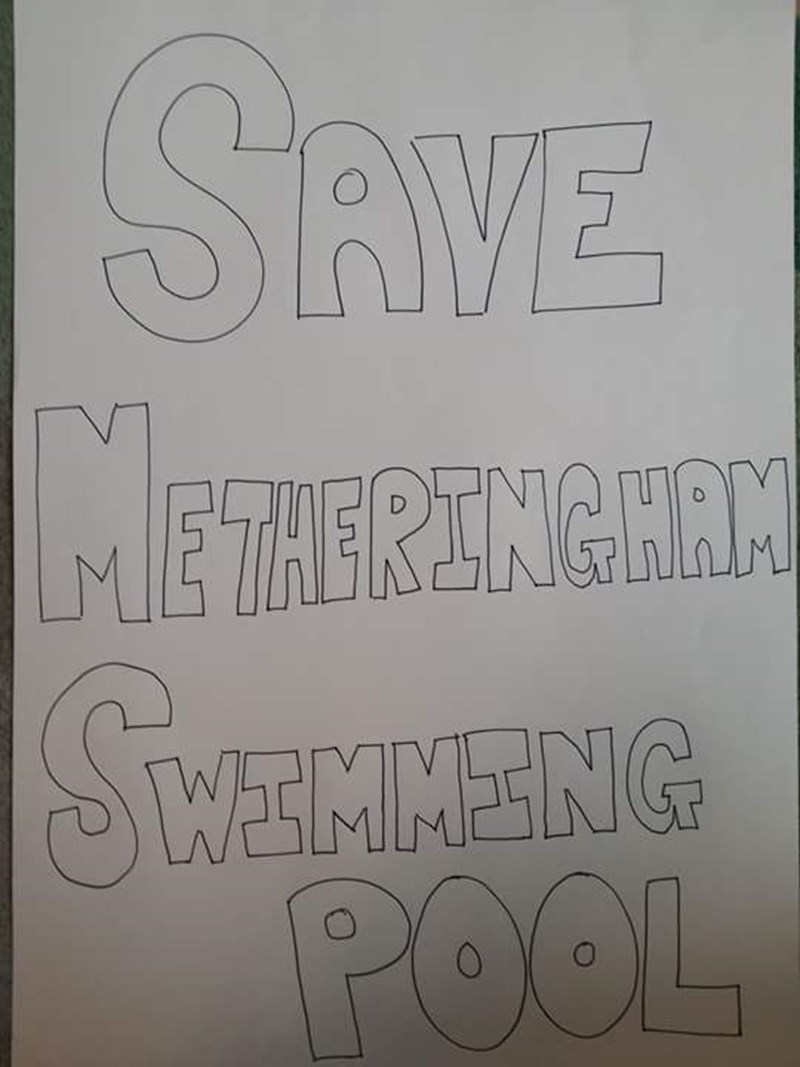 SAVE
METHERINGHAM
SWIMMING
POOL